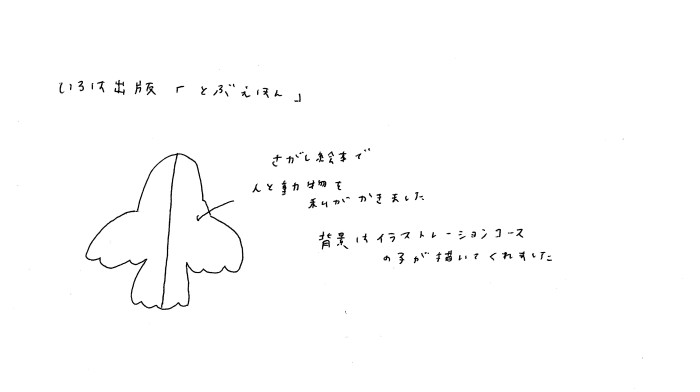 いろは出版「とぶえほん」
さがし絵本で
人と動物を
私がかきました
背景はイラストレーションコース
の子が描いてくれました